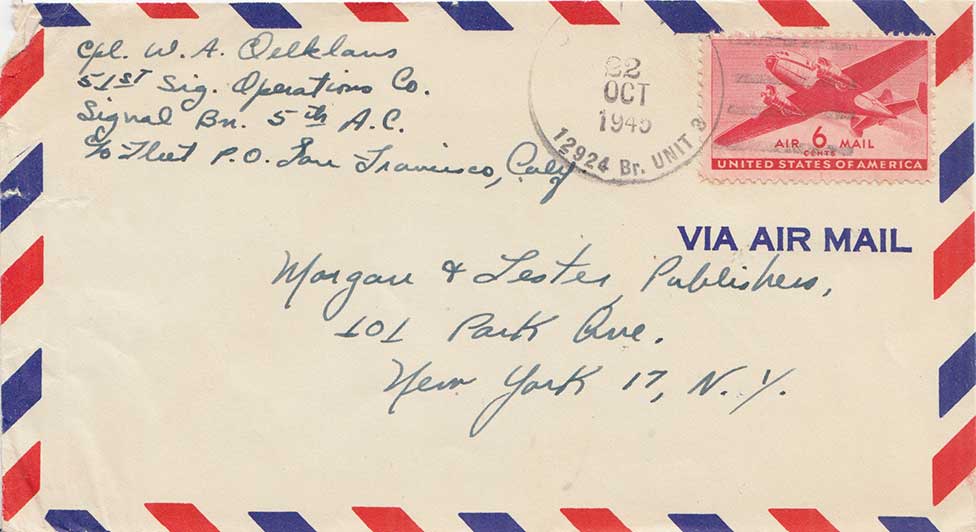 Cpl. W. A. Oelklaus
51ST Sig. Operations Co.
Signal Bn. 5th A.C.
c/o Fleet P.O. San Francisco, Calif.
22
OCT
1945
12924 Br. UNIT 3
AIR 6 MAIL
CENTS
UNITED STATES OF AMERICA
VIA AIR MAIL
Morgan & Lester Publishers,
101 Park Ave.
New York 17, N.Y.